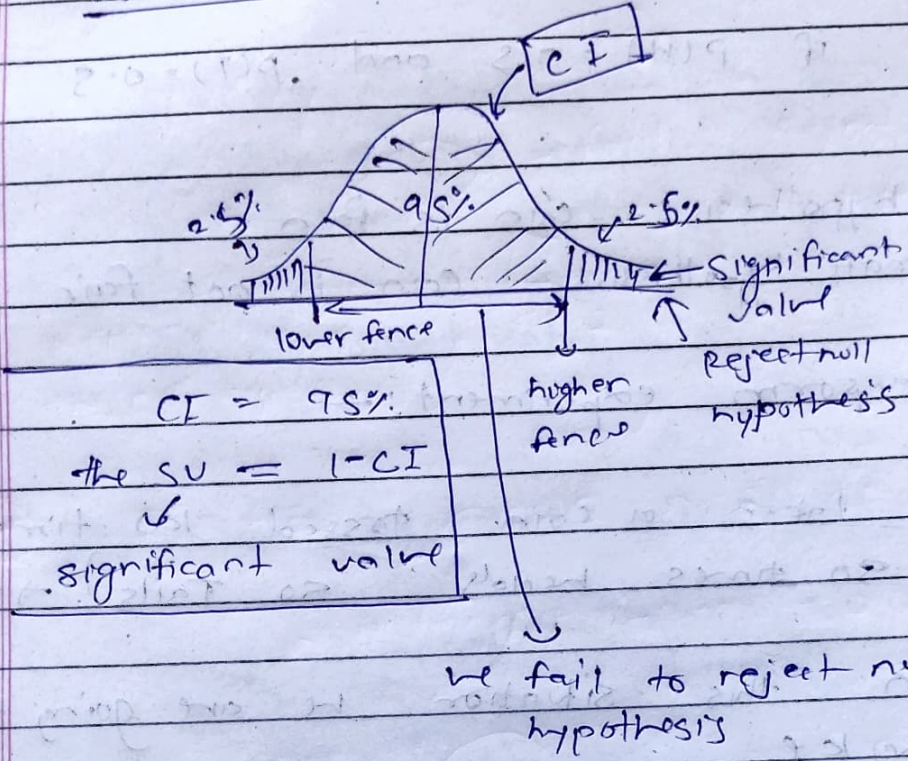 CI
2.5%
95%
2.5%
significant
value
lower fence
higher
fence
Reject null
hypothesis
CI = 95%
the SV = 1-CI
significant value
we fail to reject nu
hypothesis